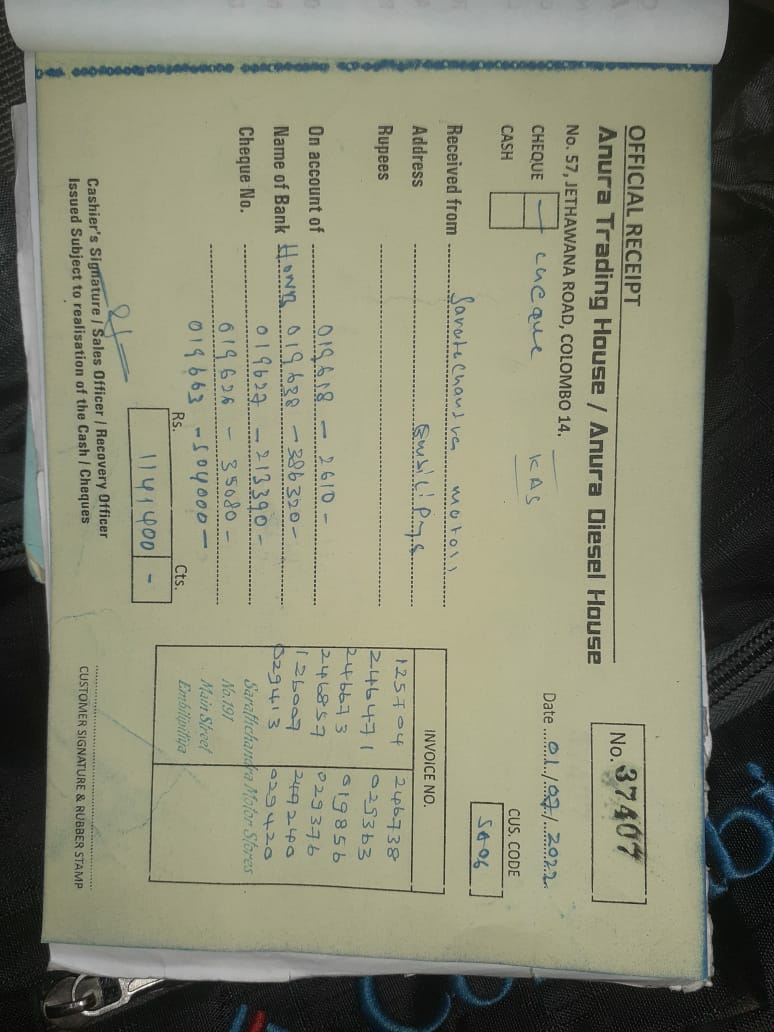 OFFICIAL RECEIPT
No. 37407
Anura Trading House / Anura Diesel House
No. 57, JETHAWANA ROAD, COLOMBO 14.
Date 01/07/2022
CHEQUE cheque KAS
CASH
CUS. CODE
SA06
Received from Saratchandra motors
Address
Rupees
INVOICE NO.
125704 246738
246471 029363
246673 019856
246857 029376
126007 247240
029413 029420
On account of 019618 - 2610 -
Name of Bank 019638 - 386320 -
Cheque No. 019627 - 213390 -
019626 - 35080 -
019663 - 504000 -
Sarathchandra Motor Stores
No.191
Main Street
Embilipitiya
Rs. Cts.
1141400 -
Cashier's Signature / Sales Officer / Recovery Officer
Issued Subject to realisation of the Cash / Cheques
CUSTOMER SIGNATURE & RUBBER STAMP